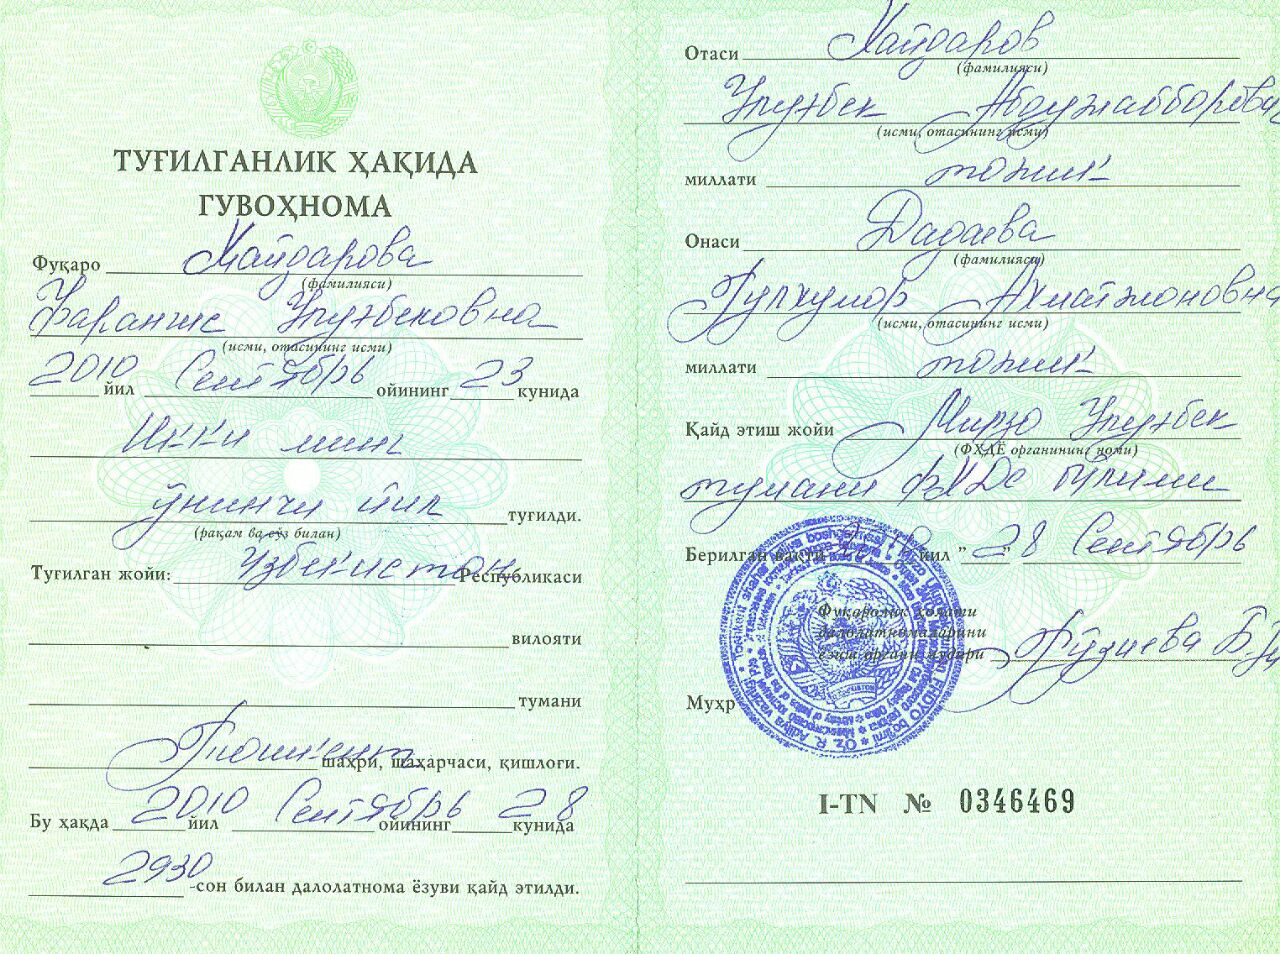 ТУҒИЛГАНЛИК ҲАҚИДА
ГУВОҲНОМА
Фуқаро Хайдарова
(фамилияси)
Фарангис Улуғбековна
(исми, отасининг исми)
2010 йил Сентябрь ойининг 23 кунида
Икки минг
ўнинчи йил туғилди.
(рақам ва сўз билан)
Туғилган жойи: Ўзбекистон Республикаси
вилояти
тумани
Тошкент шаҳри, шаҳарчаси, қишлоғи.
Бу ҳақда 2010 йил Сентябрь ойининг 28 кунида
2930 -сон билан далолатнома ёзуви қайд этилди.
Отаси Хайдаров
(фамилияси)
Улуғбек Абдужабборович
(исми, отасининг исми)
миллати тожик
Онаси Дадаева
(фамилияси)
Гулхумор Ахматжоновна
(исми, отасининг исми)
миллати тожик
Қайд этиш жойи Мирзо Улуғбек
(ФҲДЁ органининг номи)
тумани ФХДЁ бўлими
Берилган вақти йил "28" Сентябрь
Фуқаролик ҳолати
далолатномаларини
ёзиш органи мудири
Муҳр
I-TN № 0346469